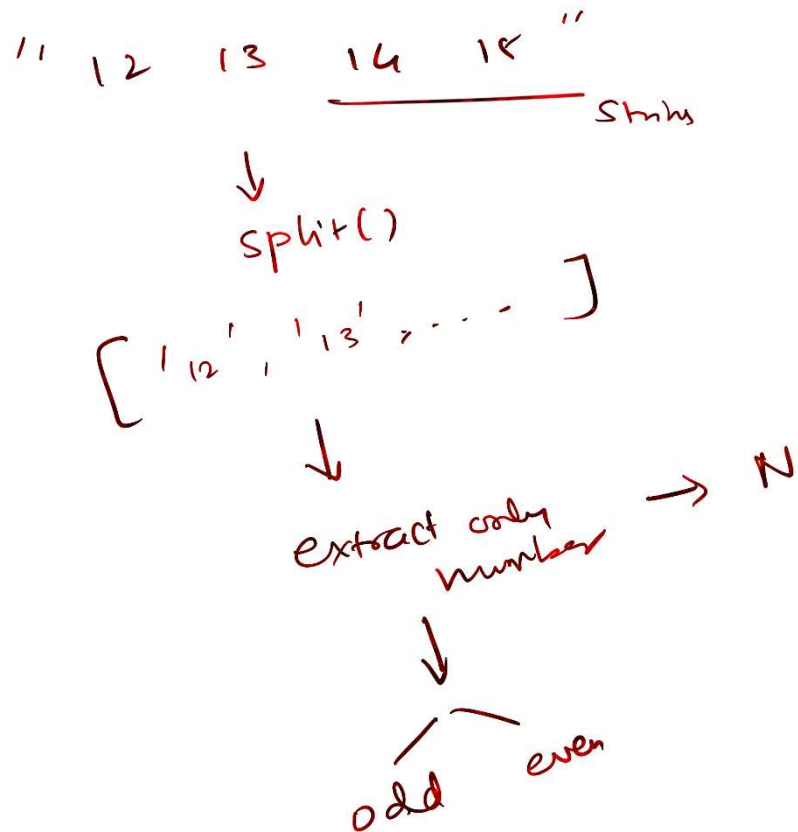 " 12 13 14 15 "
String
split()
['12', '13', .... ]
extract only → N
number
odd even